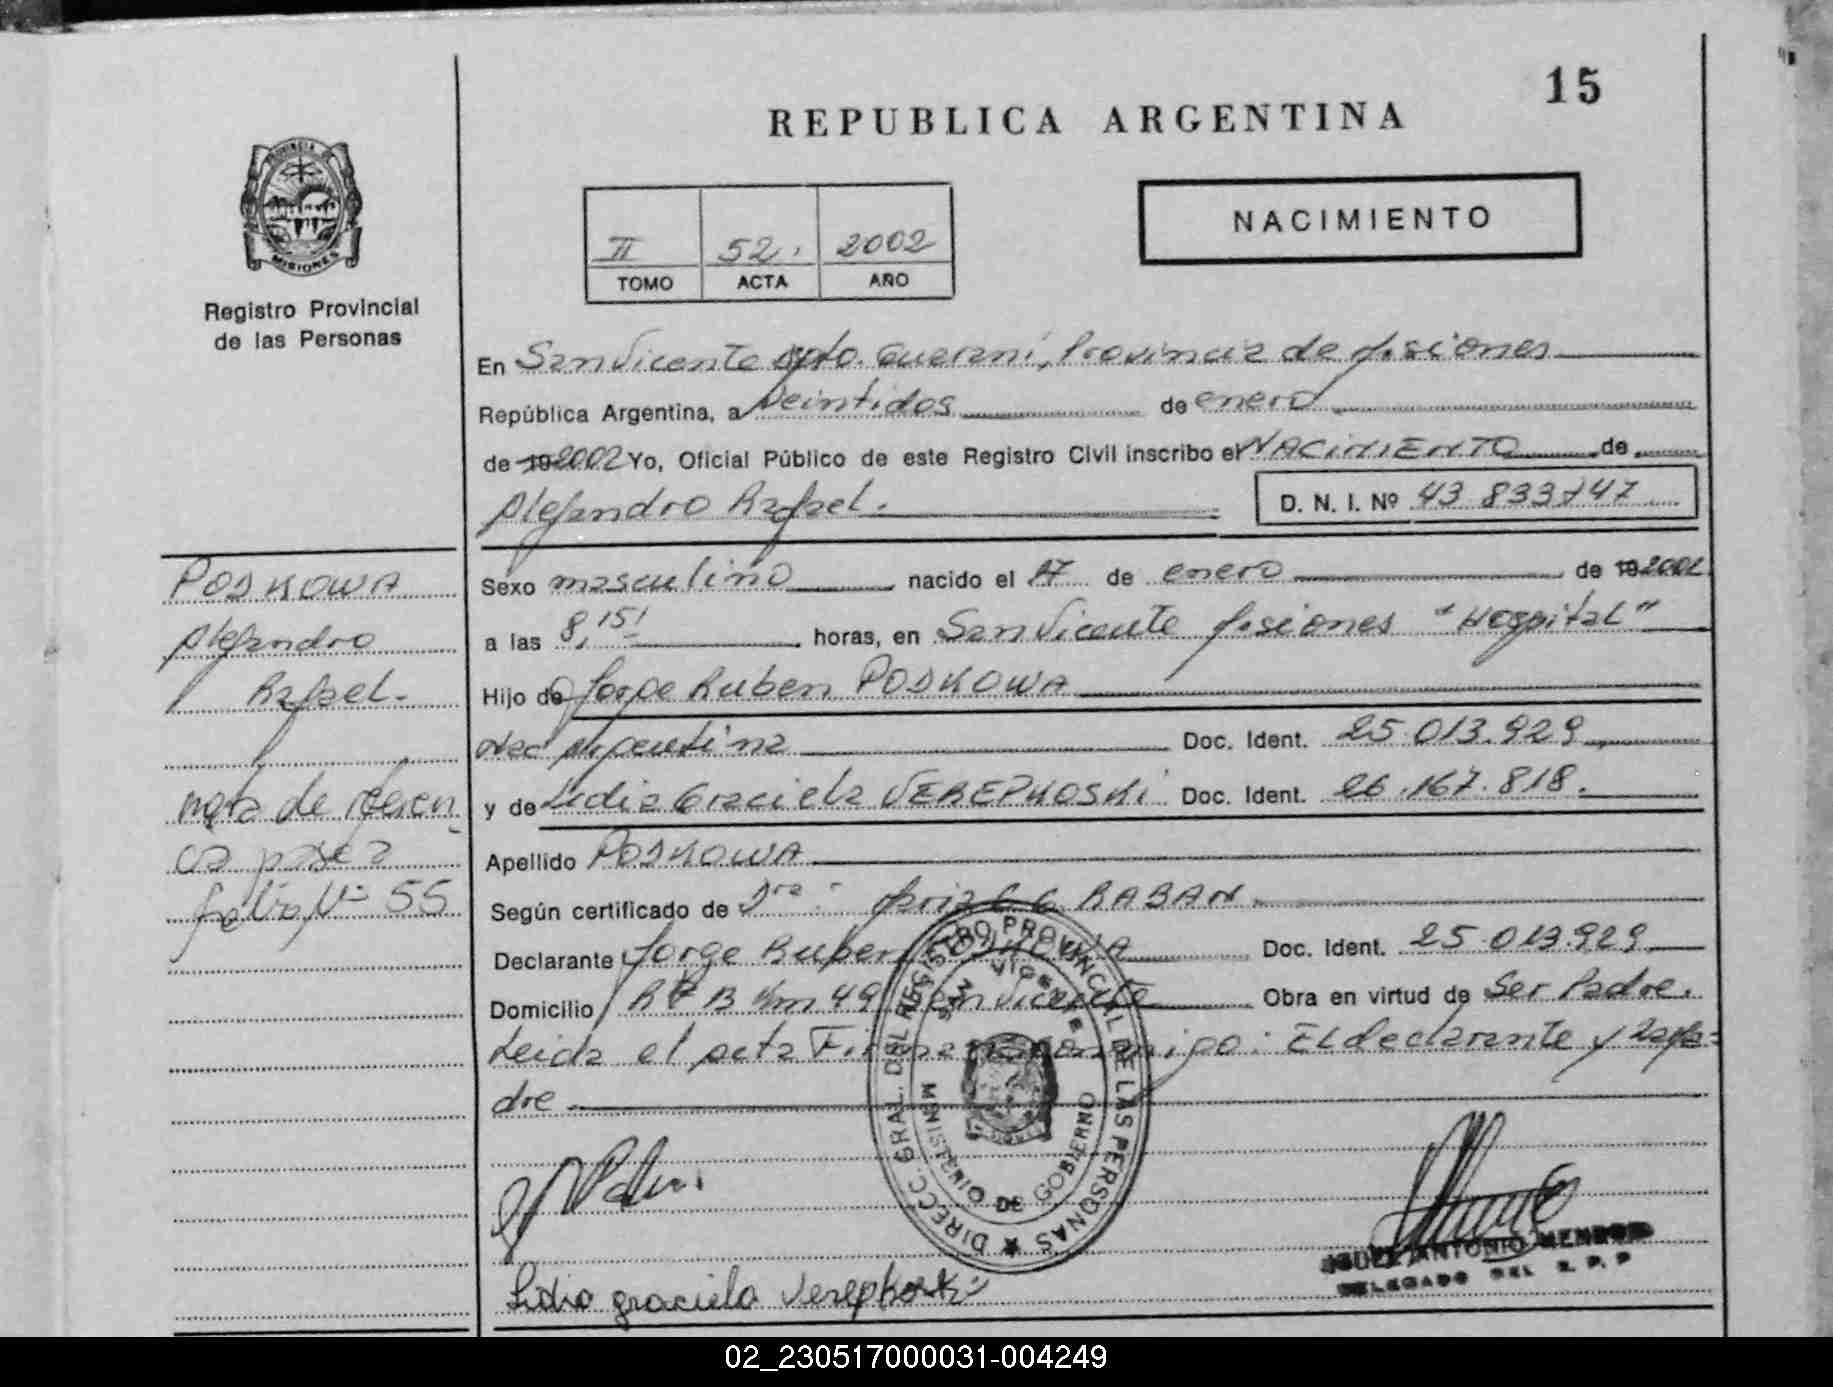 15
REPUBLICA ARGENTINA
PROVINCIA DE
MISIONES
Registro Provincial
de las Personas
NACIMIENTO
II 52. 2002
TOMO ACTA AÑO
En San Vicente Dpto. Guarani, Provincia de Misiones
República Argentina, a Veintidos de enero
de 19 2002 Yo, Oficial Público de este Registro Civil inscribo el NACIMIENTO de
Alejandro Rafael. D. N. I. Nº 43 833747
POSKOWA
Alejandro
Rafael.
nota de referen
cia pase a
folio Nº 55
Sexo masculino nacido el 17 de enero de 19 2002
a las 8,15' horas, en San Vicente Misiones "Hospital"
Hijo de Jorge Ruben POSKOWA
Nac Argentina Doc. Ident. 25.013.929
y de Lidia Graciela VEREPKOSKI Doc. Ident. 26.167.818.
Apellido POSKOWA
Según certificado de Dra: Maria G. G. RABAN
Declarante Jorge Ruben POSKOWA Doc. Ident. 25.013.929
Domicilio Km 49 San Vicente Obra en virtud de Ser Padre.
Leida el acta Firman conmigo: El declarante y la ma=
dre
DIRECC. GRAL. DEL REGISTRO PROVINCIAL DE LAS PERSONAS
SAN VICENTE
MINISTERIO DE GOBIERNO
Lidia graciela Verepkoski
ANTONIO MENDOZA
DELEGADO DEL R. P. P
02_230517000031-004249